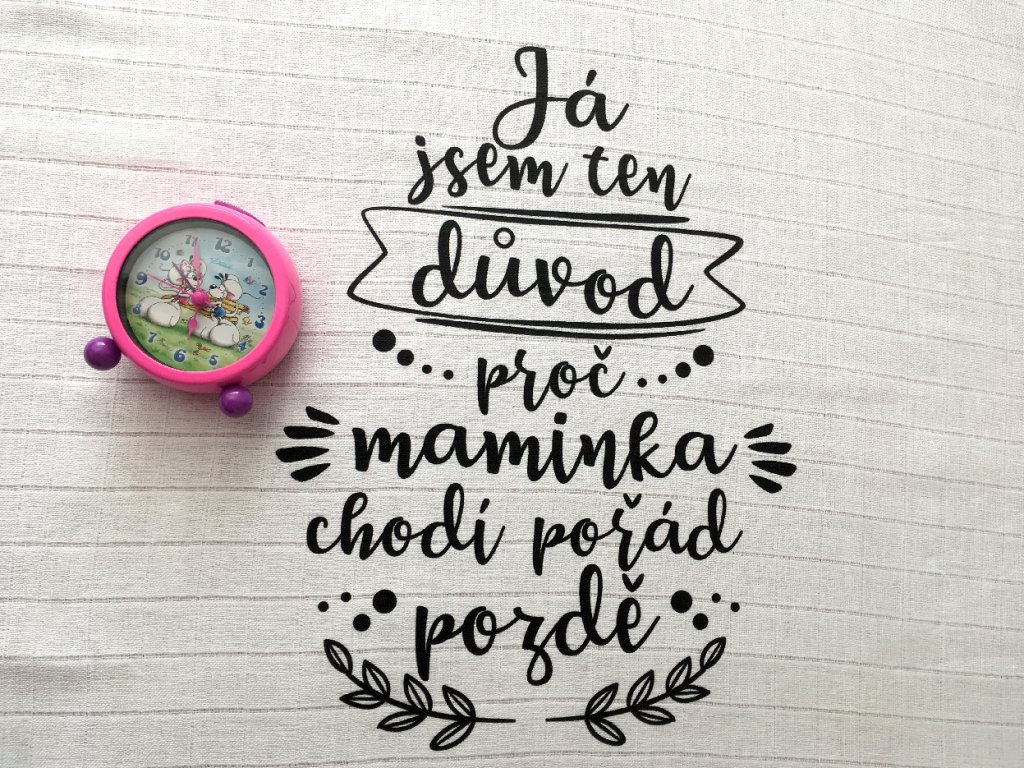 Já
jsem ten
důvod
proč
maminka
chodí pořád
pozdě
12
1
2
3
4
5
6
7
8
9
10
11